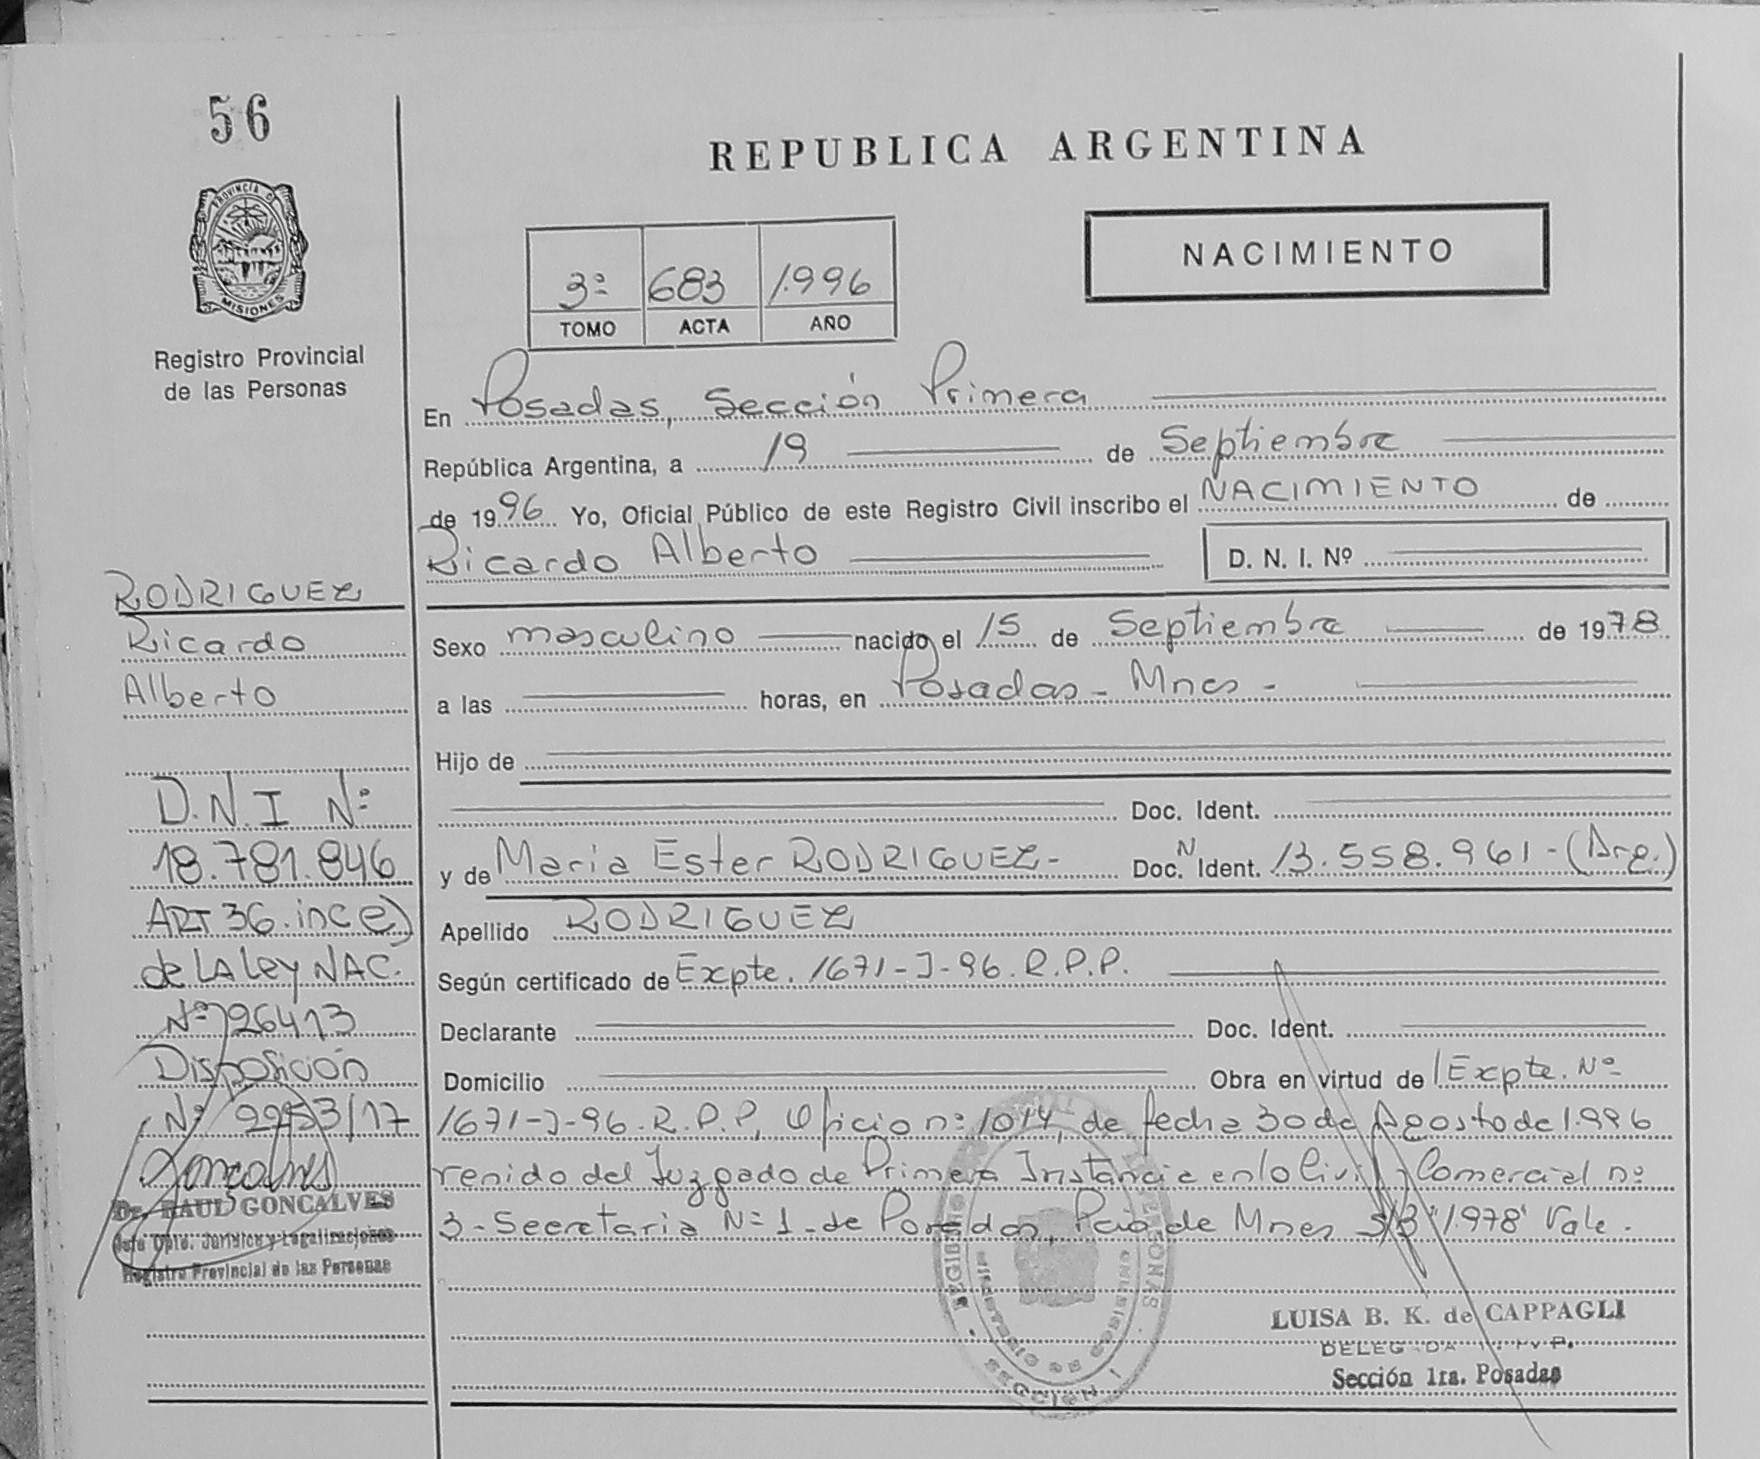 56
PROVINCIA DE
MISIONES
Registro Provincial
de las Personas
REPUBLICA ARGENTINA
NACIMIENTO
3º 683 1.996
TOMO ACTA AÑO
En Posadas, Sección Primera
República Argentina, a 19 de Septiembre
de 1996 Yo, Oficial Público de este Registro Civil inscribo el NACIMIENTO de
Ricardo Alberto D. N. I. Nº
RODRIGUEZ
Ricardo
Alberto
D.N.I Nº
18.781.846
ART 36. inc e)
de LA Ley NAC.
Nº 26413
Disposición
Nº 2253/17
Dr. RAUL GONCALVES
Jefe Dpto. Jurídico y Legalizaciones
Registro Provincial de las Personas
Sexo masculino nacido el 15 de Septiembre de 1978
a las horas, en Posadas - Mnes -
Hijo de
Doc. Ident.
y de Maria Ester RODRIGUEZ - Doc. N Ident. 13.558.961 - (Arg.)
Apellido RODRIGUEZ
Según certificado de Expte. 1671-J-96. R.P.P.
Declarante Doc. Ident.
Domicilio Obra en virtud de Expte. Nº
1671-J-96. R.P.P, Oficio nº 1014, de fecha 30 de Agosto de 1.996
venido del Juzgado de Primera Instancia en lo Civil y Comercial nº
3 - Secretaria Nº 1 - de Posadas, Pcia de Mnes S/B "1.978" Vale.
LUISA B. K. de CAPPAGLI
Sección 1ra. Posadas